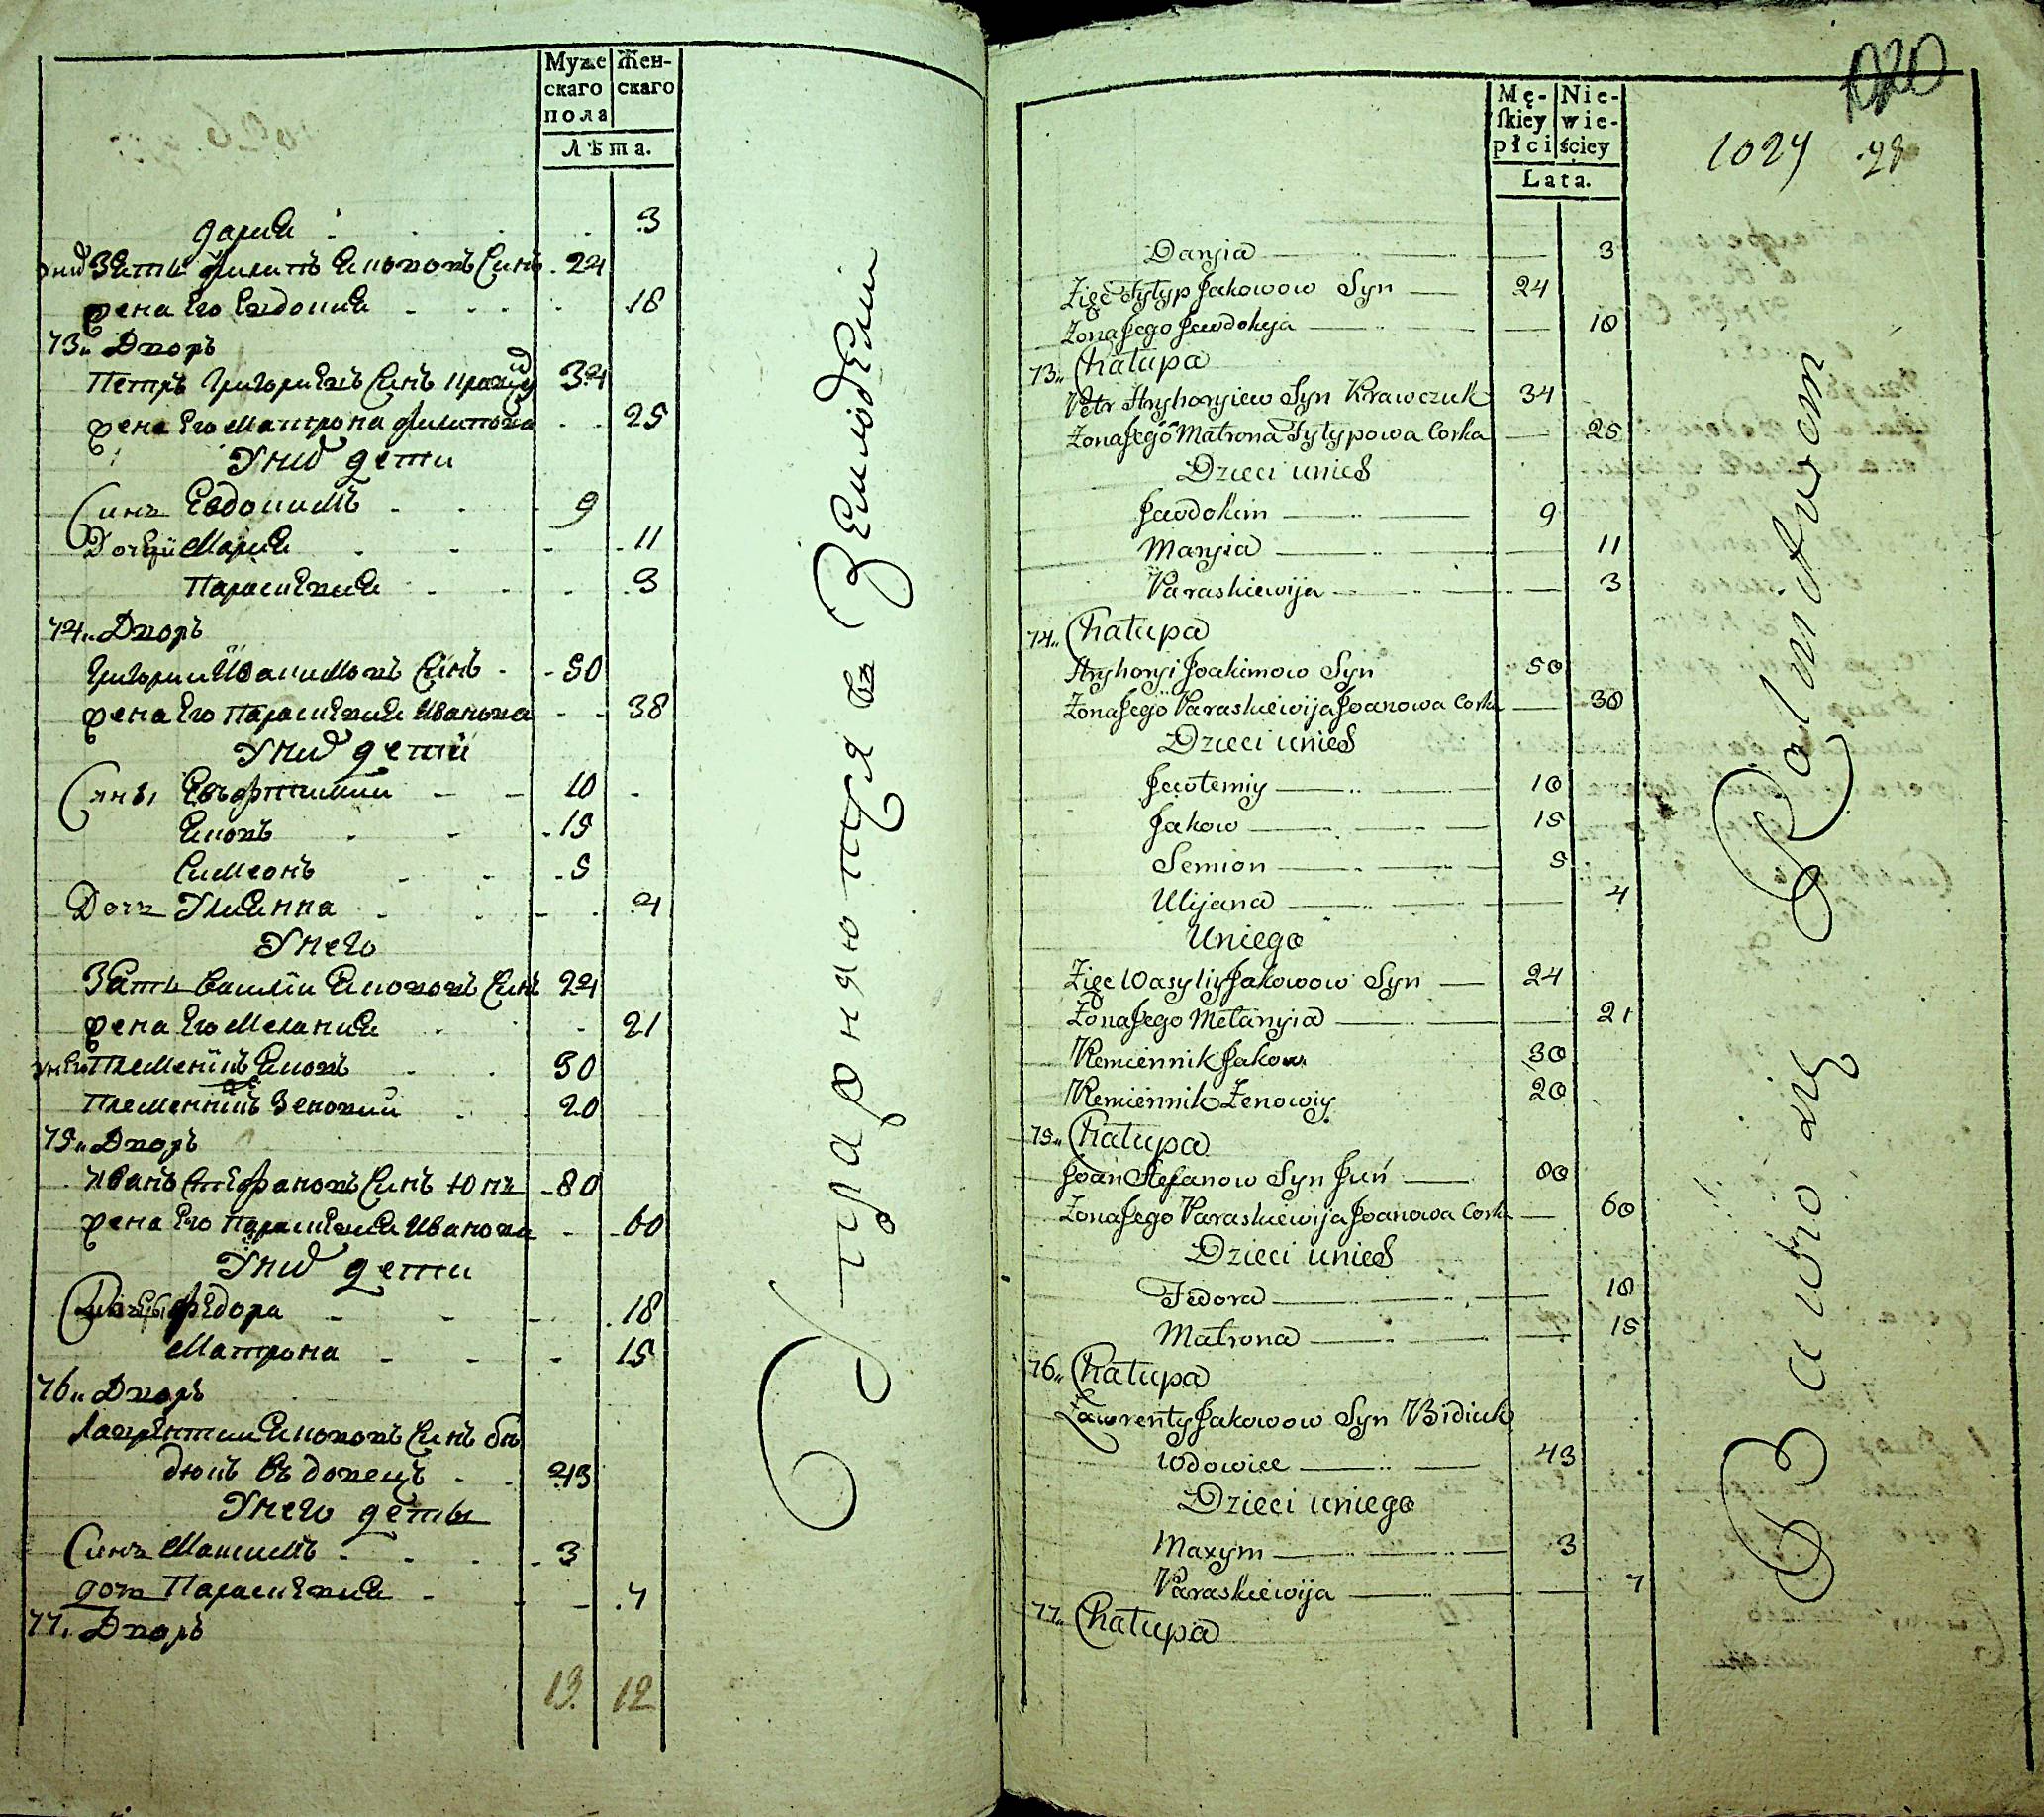 Муже
скаго
пола
Жен-
скаго
Лѣта.
Дария 3
Зять Филипъ Якововъ Синъ 24
жена Его Евдокия 18
73. Дворъ
Петръ Григориевъ Синъ 34
жена Его Матрона Филипова 25
У них дети
Синъ Евдокимъ 9
Дочери Мария 11
Параскевия 3
74. Дворъ
Григории Иоакимовъ Синъ 50
жена Его Параскевия Иванова 38
У них дети
Сины Евфтимии 10
Яковъ 15
Симеонъ 5
Дочь Улиянна 4
У него
Зять Василии Якововъ Синъ 24
жена Его Мелания 21
Племеникъ Яковъ 30
Племенникъ Зеновий 20
75. Дворъ
Иванъ Стефановъ Синъ Юнь 80
жена Его Параскевия Иванова 60
У них дети
Федора 18
Матрона 15
76. Дворъ
Лаврентии Якововъ Синъ би
дюкъ вдовецъ 43
У него дети
Синъ Максимъ 3
дочь Параскевия 7
77. Дворъ
13 12
Упражняются въ Земледелии
Mę-
ſkiey
płci
Nie-
wie-
ściey
Lata.
1020
1024 98
Daryia 3
Zięć Fyłyp Jakowow Syn 24
Zona Jego Jewdokyja 18
73. Chałupa
Petr Hryhoryiew Syn Krawczuk 34
Zona Jego Matrona Fyłypowa Corka 25
Dzieci unich
Jewdokim 9
Maryia 11
Paraskiewija 3
74. Chałupa
Hryhoryi Joakimow Syn 50
Zona Jego Paraskiewija Joanowa Corka 38
Dzieci unich
Jewtemiy 10
Jakow 15
Semion 5
Ulijana 4
Uniego
Zięć Wasyliy Jakowow Syn 24
Zona Jego Mełanyia 21
Plemiennik Jakow 30
Plemiennik Zenowiy 20
75. Chałupa
Joan Stefanow Syn Juń 80
Zona Jego Paraskiewija Joanowa Corka 60
Dzieci unich
Fedora 18
Matrona 15
76. Chałupa
Ławrenty Jakowow Syn Bidiuk
Wdowiec 43
Dzieci uniego
Maxym 3
Paraskiewija 7
77. Chałupa
Bawio się Rolnictwem